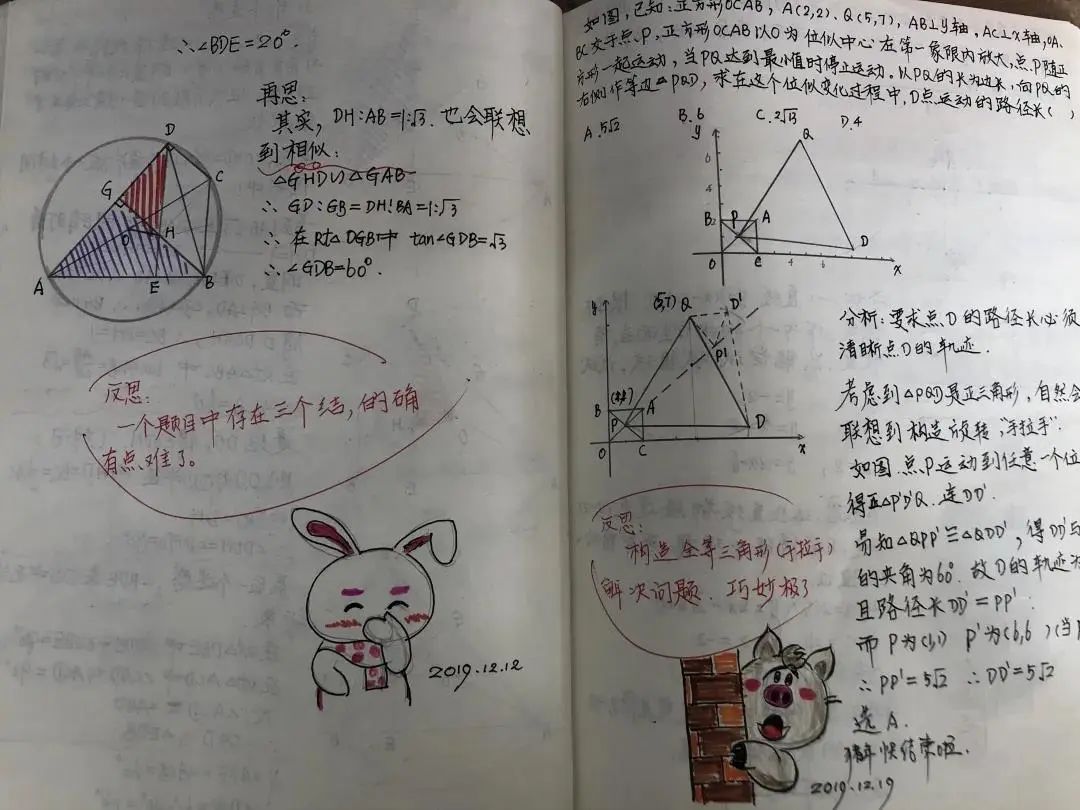 ∴∠BDE=20°.
再思:
其实, DH:AB=1:√3. 也会联想
到相似:
△GHD∽△GAB
∴ GD:GB=DH:BA=1:√3
∴ 在Rt△DGB中 tan∠GDB=√3
∴∠GDB=60°.
D
C
G
O
H
A
E
B
反思:
一个题目中存在三个结, 的确
有点难了。
2019.12.12
如图, 已知: 正方形OCAB, A(2,2), Q(5,7), AB⊥y轴, AC⊥x轴, OA、
BC交于点P, 正方形OCAB以O为位似中心在第一象限内放大, 点P随正
方形一起运动, 当PQ达到最小值时停止运动. 以PQ的长为边长, 向PQ的
右侧作等边△PQD, 求在这个位似变化过程中, D点运动的路径长( )
A.5√2 B.6 C.2√13 D.4
y
Q
6
4
B
2
P
A
D
O
C
4
6
x
y
(5,7)
Q
D'
P'
B
A
P
D
O
C
x
分析: 要求点D的路径长必须
清晰点D的轨迹.
考虑到△PQD是正三角形, 自然会
联想到构造旋转“手拉手”.
如图. 点P运动到任意一个位
得正△P'D'Q. 连DD'.
易知△QPP'≌△QDD', 得DD'与
的夹角为60°. 故D的轨迹为
且路径长DD'=PP'.
而P为(1,1) P'为(6,6) (当P
∴PP'=5√2 ∴DD'=5√2
选A.
猪年快结束啦.
反思:
构造全等三角形(手拉手)
解决问题. 巧妙极了
2019.12.19